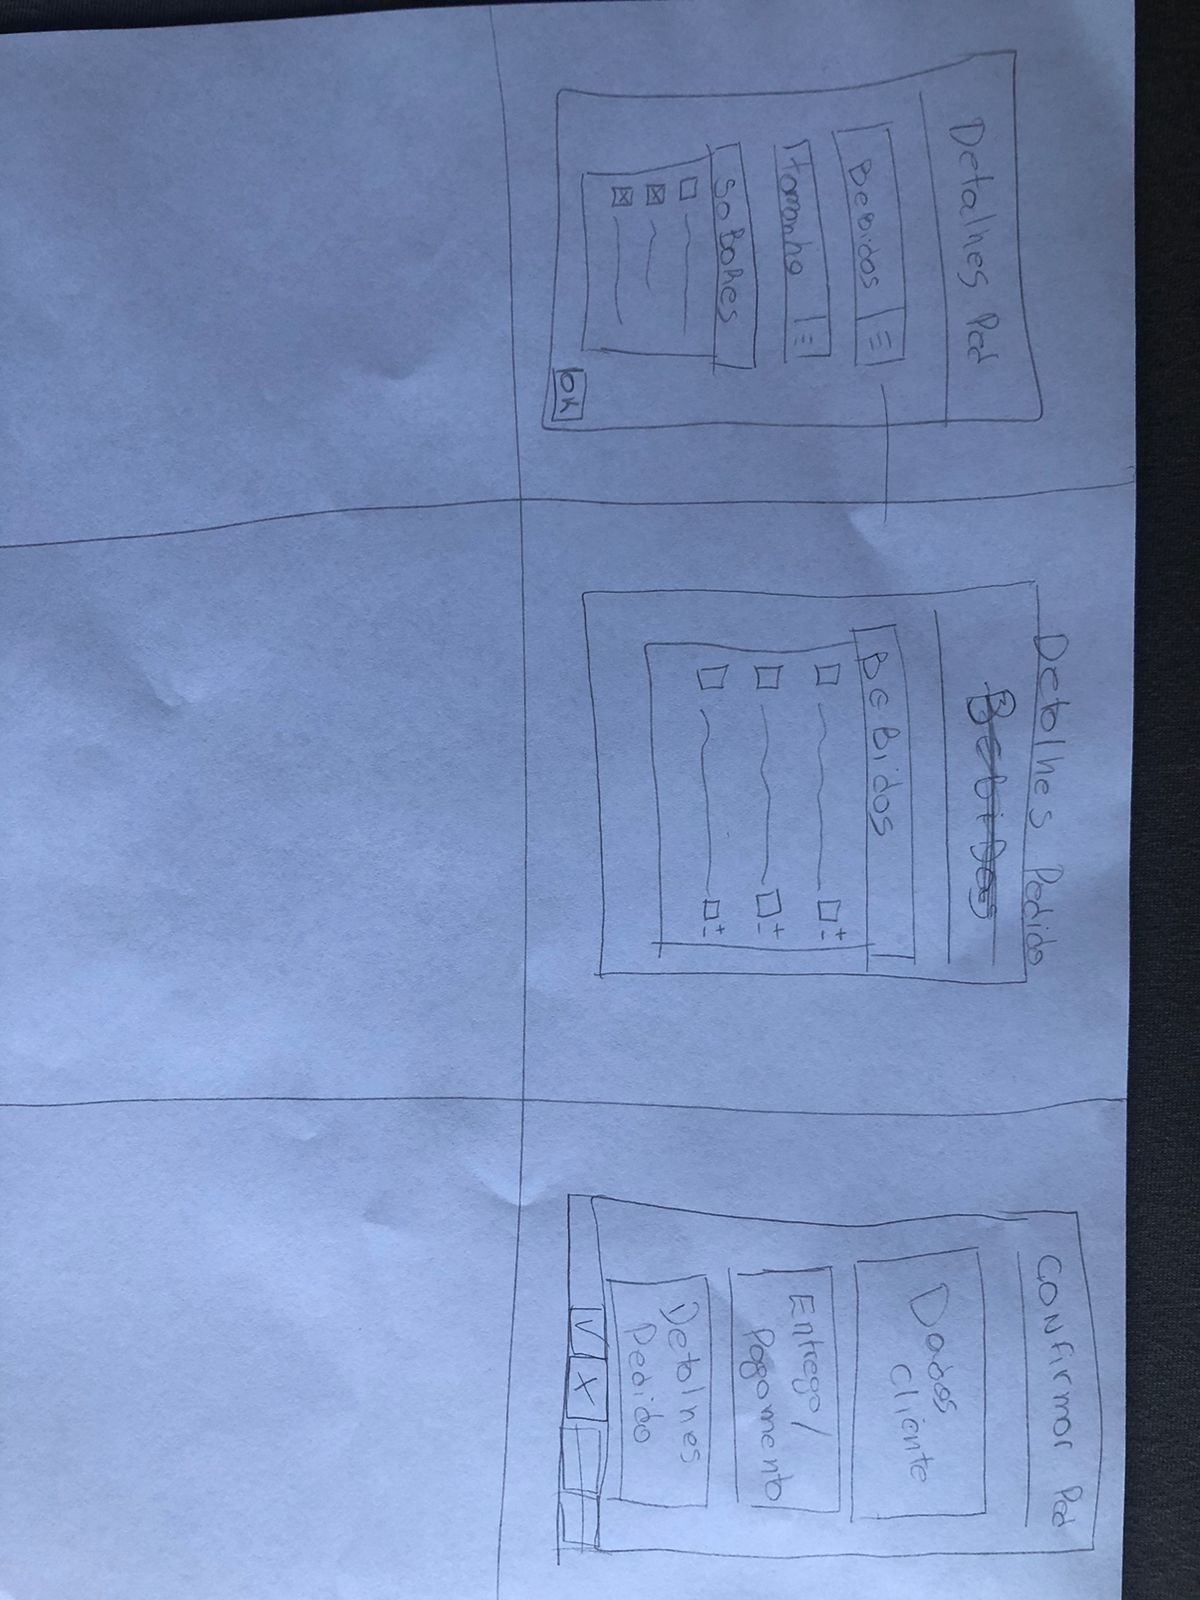 Detalhes Ped
Bebidas
tamanho
SaBoRes
OK
Detalhes Pedido
Bebidas
BEBidas
+
-
+
-
+
-
CONfirmar Ped
Dados
Cliente
Entrega/
Pagamento
Detalhes
Pedido